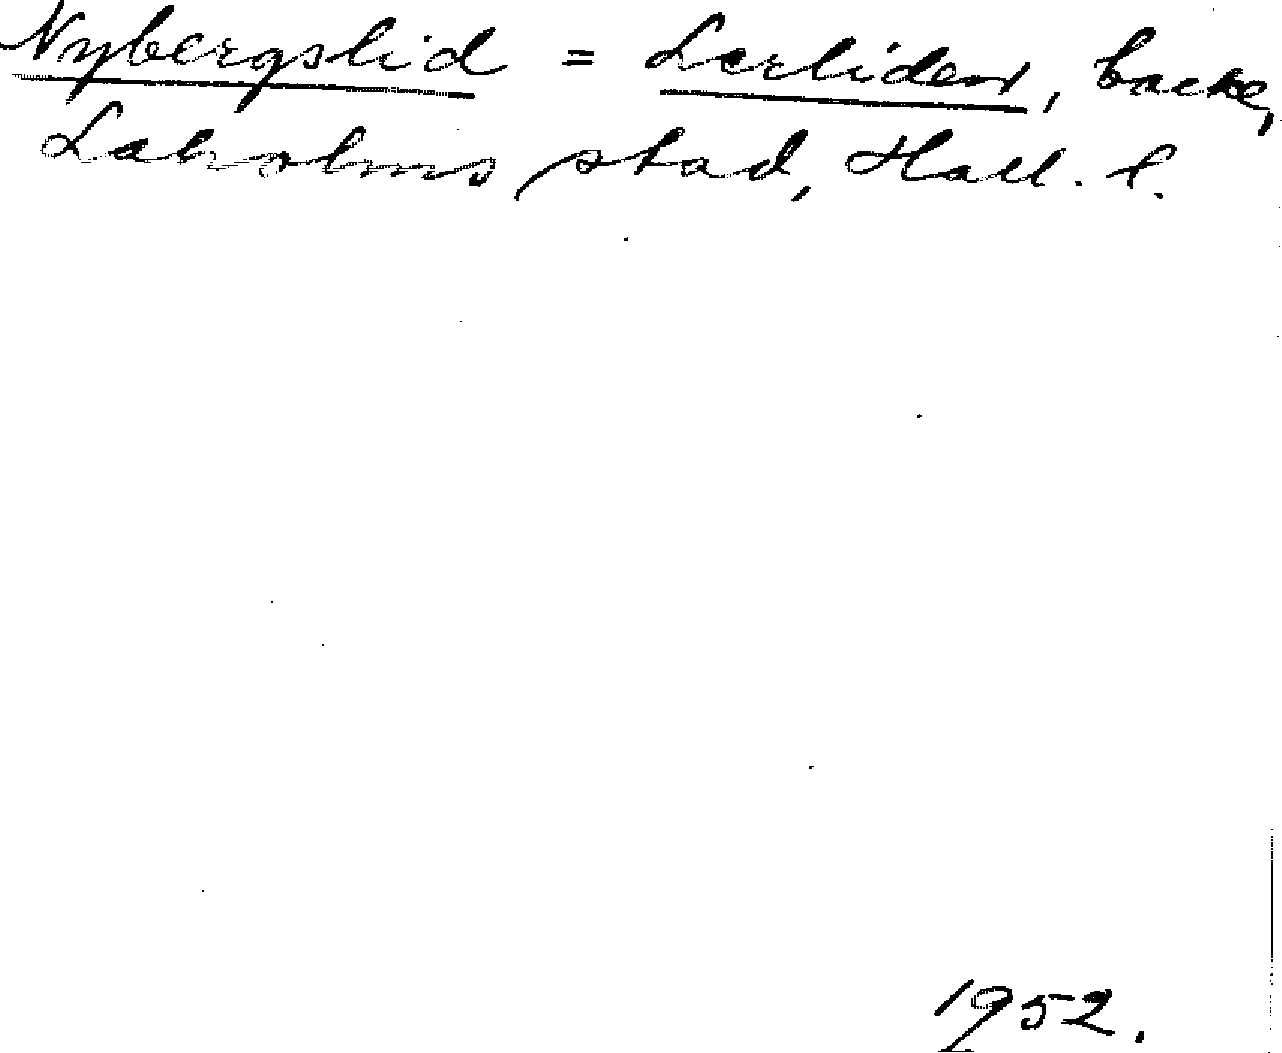 Nybergslid = Lerliden, backe,
Laholms stad, Hall. l.
1952.